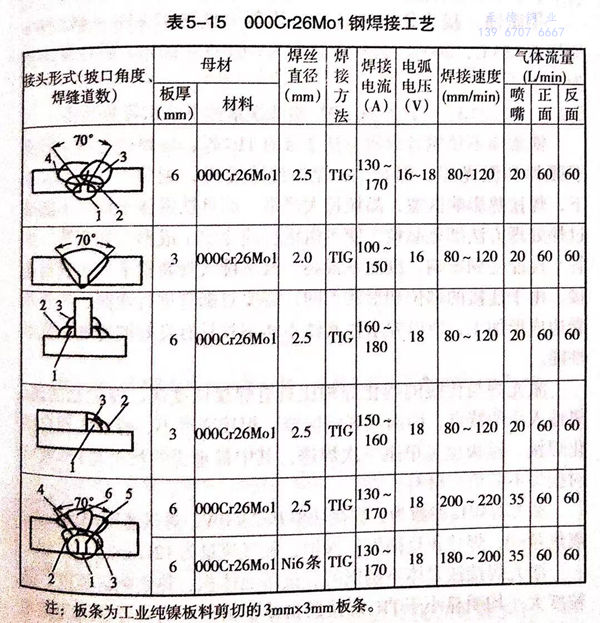 表5-15 000Cr26Mo1钢焊接工艺
139 6707 6667
接头形式(坡口角度、焊缝道数) 母材 焊丝直径(mm) 焊接方法 焊接电流(A) 电弧电压(V) 焊接速度(mm/min) 气体流量(L/min)
板厚(mm) 材料 喷嘴 正面 反面
70° 4 3 1 2 6 000Cr26Mo1 2.5 TIG 130~170 16~18 80~120 20 60 60
70° 3 000Cr26Mo1 2.0 TIG 100~150 16 80~120 20 60 60
2 3 1 6 000Cr26Mo1 2.5 TIG 160~180 18 80~120 20 60 60
3 2 1 3 000Cr26Mo1 2.5 TIG 150~160 18 80~120 20 60 60
4 70° 6 5 2 1 3 6 000Cr26Mo1 2.5 TIG 130~170 18 200~220 35 60 60
6 000Cr26Mo1 Ni6条 TIG 130~170 18 180~200 35 60 60
注：板条为工业纯镍板料剪切的3mm×3mm板条。